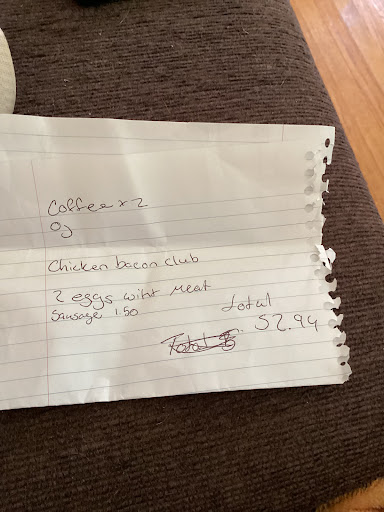 Coffee x 2
Oj
Chicken bacon club
2 eggs wiht meat
Sausage 1.50
total
52.94
Total $